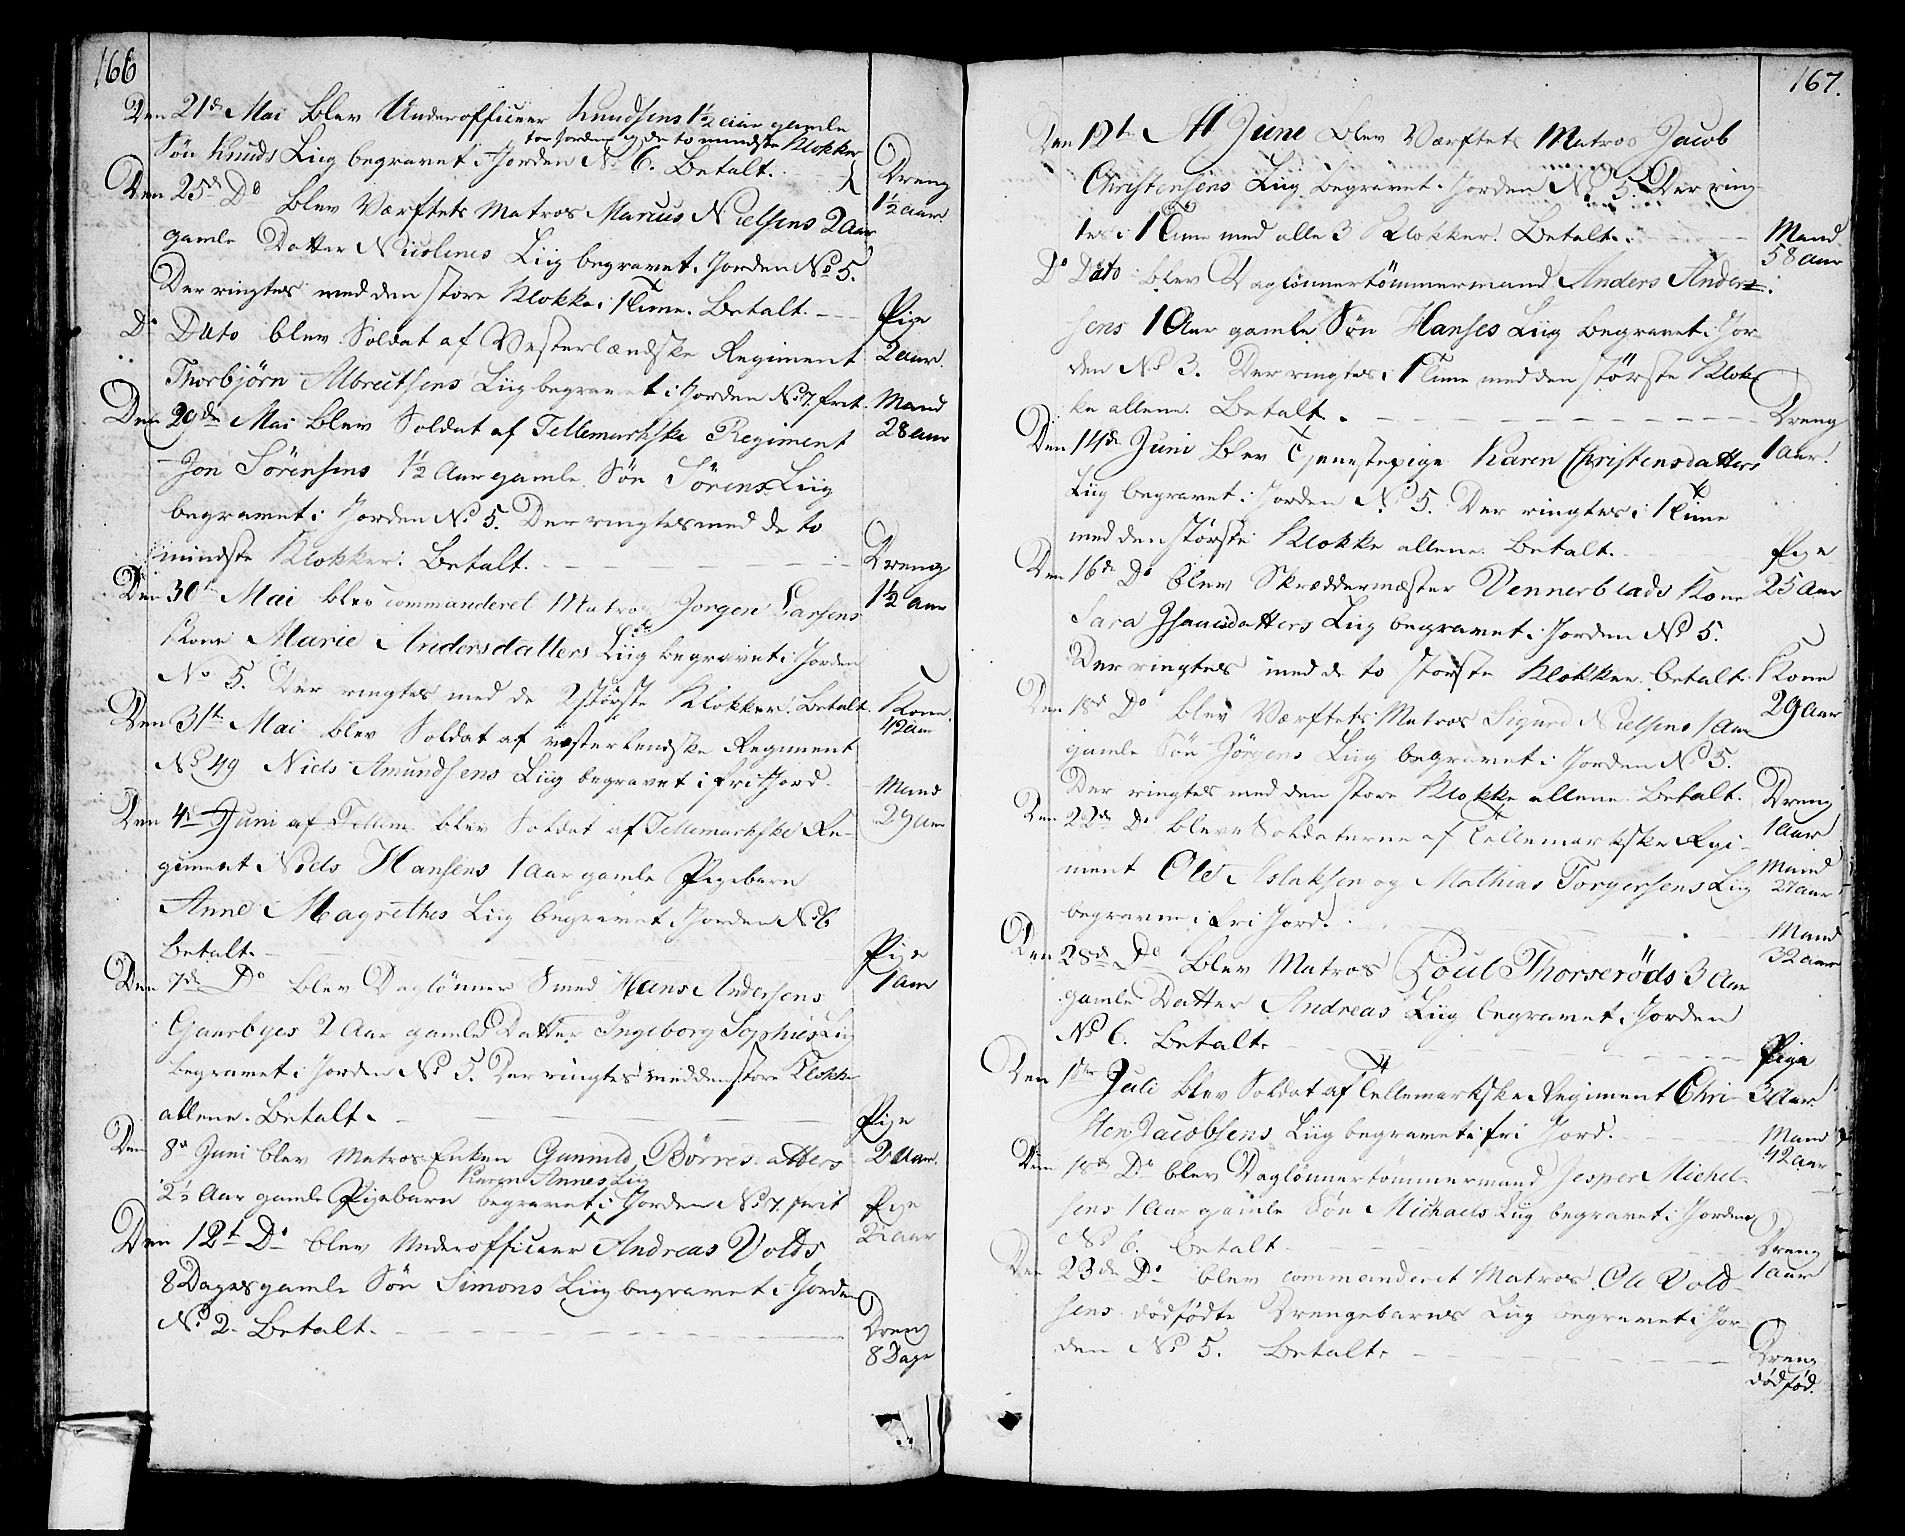 166
Den 21de Mai blev Underofficeer Knudsens 1½ Aar gamle
for Jorden og de to mindste Klokker
Søn Knuds Liig begravet i Jorden No 6. Betalt.
Dreng
1½ Aar
Den 25de Do blev Værftets Matros Marcus Nielsens 2 Aar
gamle Datter Nicolines Liig begravet i Jorden No 5.
Der ringtes med den store Klokke i 1 Time. Betalt.
Pige
2 Aar.
Do Dato blev Soldat af Vesterlændske Regiment
Thorbjörn Albretsens Liig begravet i Jorden No 7. frit.
Mand
28 Aar
Den 29de Mai blev Soldat af Tellemarkske Regiment
Jon Sörensens 1½ Aar gamle Søn Sörens Liig
begravet i Jorden No 5. Der ringtes med de to
mindste Klokker. Betalt.
Dreng
1½ Aar
Den 30te Mai blev commanderet Matros Jorgen Larsens
Kone Marie Andersdatters Liig begravet i Jorden
No 5. Der ringtes med de 2 störste Klokker. Betalt.
Kone.
42 Aar
Den 31te Mai blev Soldat af vesterlendske Regiment
No 49 Niels Amundsens Liig begravet i fri Jord.
Mand
29 Aar
Den 4de Juni af Tellem blev Soldat af Tellemarkske Re-
giment Niels Hansens 1 Aar gamle Pigebarn
Anne Magrethes Liig begravet i Jorden No 6
betalt.
Pige
1 Aar
Den 7de Do blev Daglönner Smed Hans Andersens
Gaarbyes 2 Aar gamle Datter Ingeborg Sophies Liig
begravet i Jorden No 5. Der ringtes med den store Klokke
allene. Betalt.
Pige
2 Aar.
Den 8de Juni blev Matros Enken Gunnild Börresdatters
Karen Annes Liig
2½ Aar gamle Pigebarn begravet i Jorden No 7. frit
Pige
2½ Aar
Den 12te Do blev Underofficeer Andreas Volds
8 Dages gamle Søn Simons Liig begravet i Jorden
No 2. Betalt.
Dreng
8 Dage
167.
Den 12te June blev Værftets Matros Jacob
Christensens Liig begravet i Jorden No 5. Der ring-
tes i 1 Time med alle 3 Klokker. Betalt.
Mand
58 Aar
Do Dato blev Daglönnertömmermand Anders Ander-
sens 1 Aar gamle Søn Hanses Liig begravet i Jor-
den No 3. Der ringtes i 1 Time med den störste Klok-
ke allene. Betalt.
Dreng
1 Aar.
Den 14de Juni blev Tjenestepige Karen Christensdatters
Liig begravet i Jorden No 5. Der ringtes i 1 Time
med den störste Klokke allene. Betalt.
Pige
25 Aar
Den 16de Do blev Skræddermæster Vennerblads Kone
Sara Isaacsdatters Liig begravet i Jorden No 5.
Der ringtes med de to störste Klokker. betalt.
Kone
29 Aar
Den 18de Do blev Værftets Matros Sigurd Nielsens 1 Aar
gamle Søn Jörgens Liig begravet i Jorden No 5.
Der ringtes med den store Klokke allene. Betalt.
Dreng
1 Aar
Den 22de Do bleve Soldaterne af Tellemarkske Regi-
ment Ole Aslaksen og Mathias Torgersens Liig
begravne i fri Jord.
Mand
27 Aar
Mand
32 Aar
Den 28de Do blev Matros Poul Thorseröds 3 Aar
gamle Datter Andreas Liig begravet i Jorden
No 6. Betalt.
Pige
3 Aar.
Den 1ste Juli blev Soldat af Tellemarkske Regiment Chri-
sten Jacobsens Liig begravet i fri Jord.
Mand
42 Aar
Den 18de Do blev Daglönnertömmermand Jesper Michel-
sens 1 Aar gamle Søn Michaels Liig begravet i Jorden
No 6. betalt
Dreng
1 Aar
Den 23de Do blev commanderet Matros Ole Vold-
sens dödfödte Drengebarns Liig begravet i Jor-
den No 5. Betalt.
Dreng
dödföd.